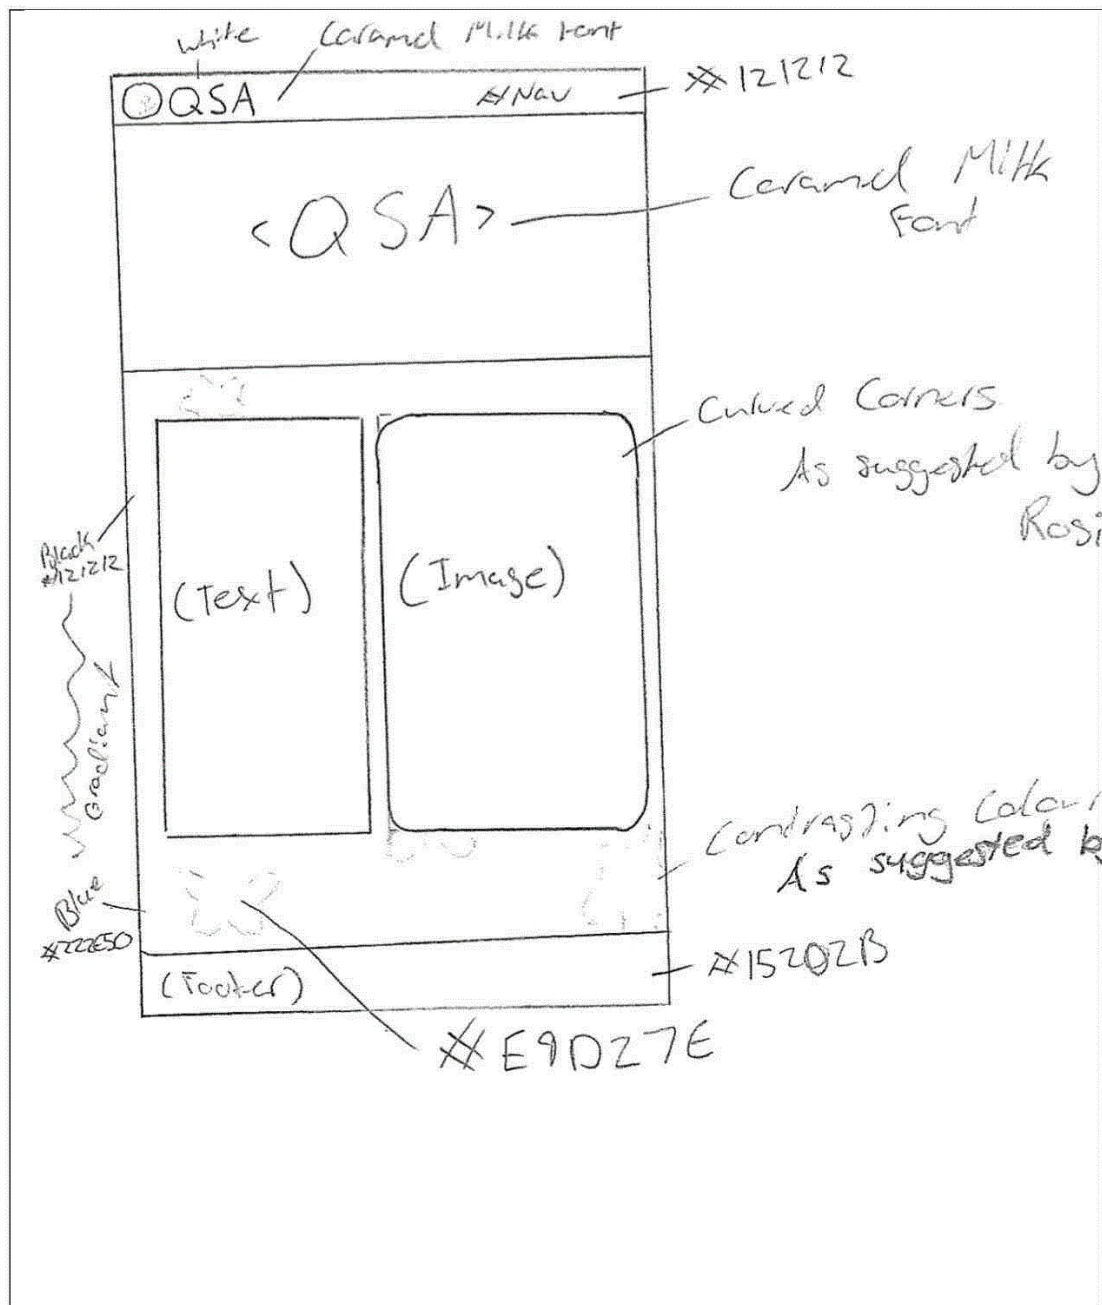 White
Caramel Milk Font
QSA
#Nav
#121212
<QSA>
Caramel Milk
Font
Curved Corners
As suggested by
Rosi
Black
#121212
(Text)
(Image)
Gradient
Contrasting Colour
As suggested b
Blue
#222E50
(Footer)
#15202B
#E9D27E